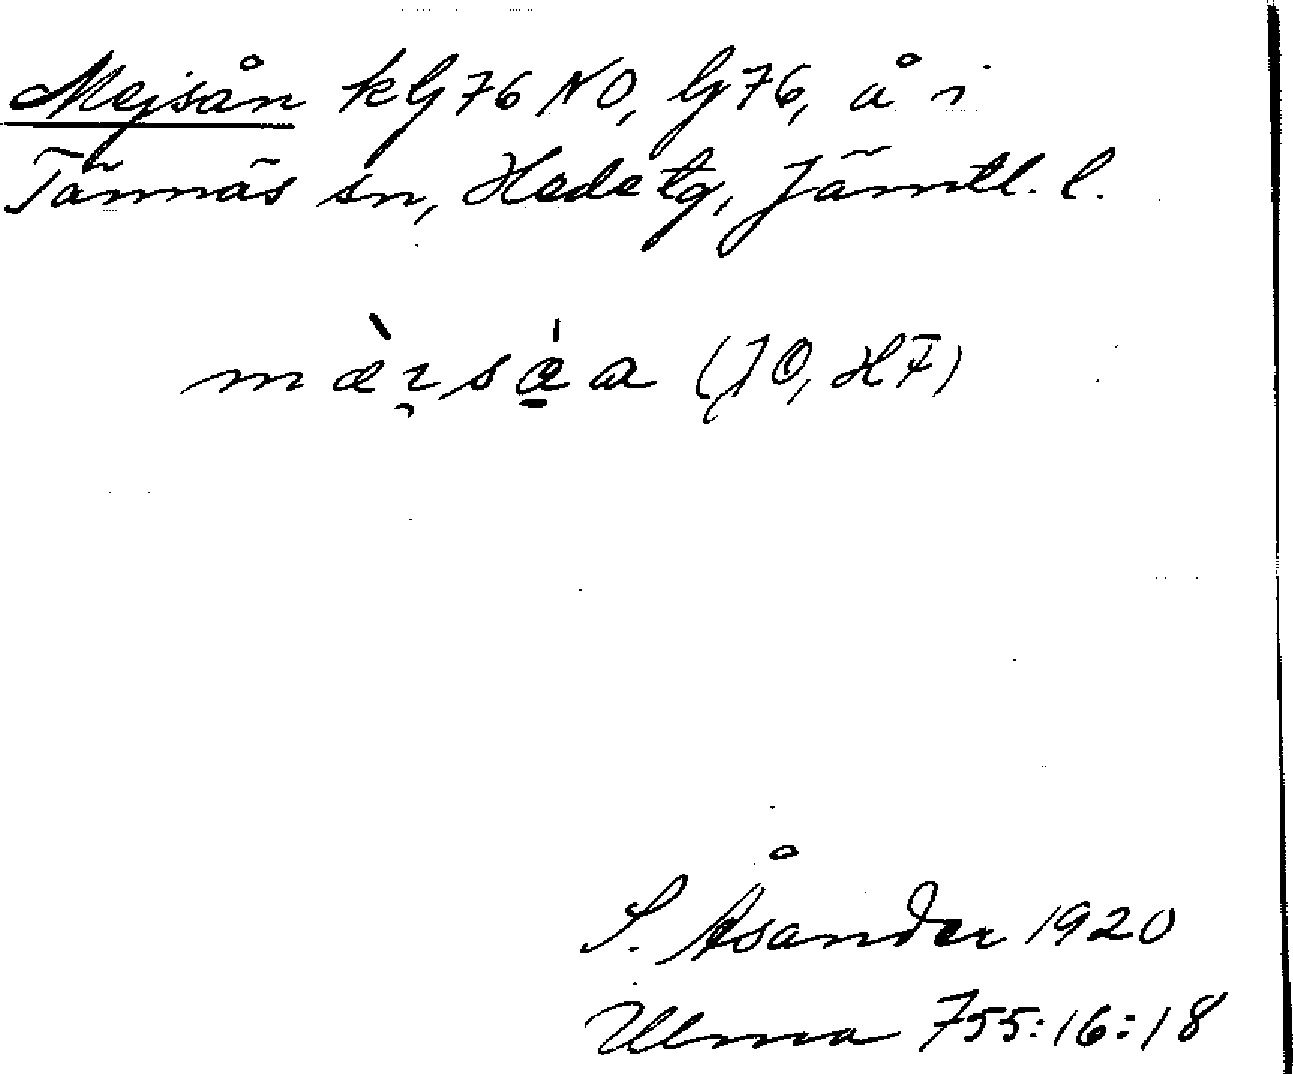 Mejsån kG76NO, G76, å i
Tännäs sn, Hede tg, Jämtl. l.
mæ̀ɪ̯sǽ̱a (JO, HF)
S. Åsander 1920
Ulma 755:16:18